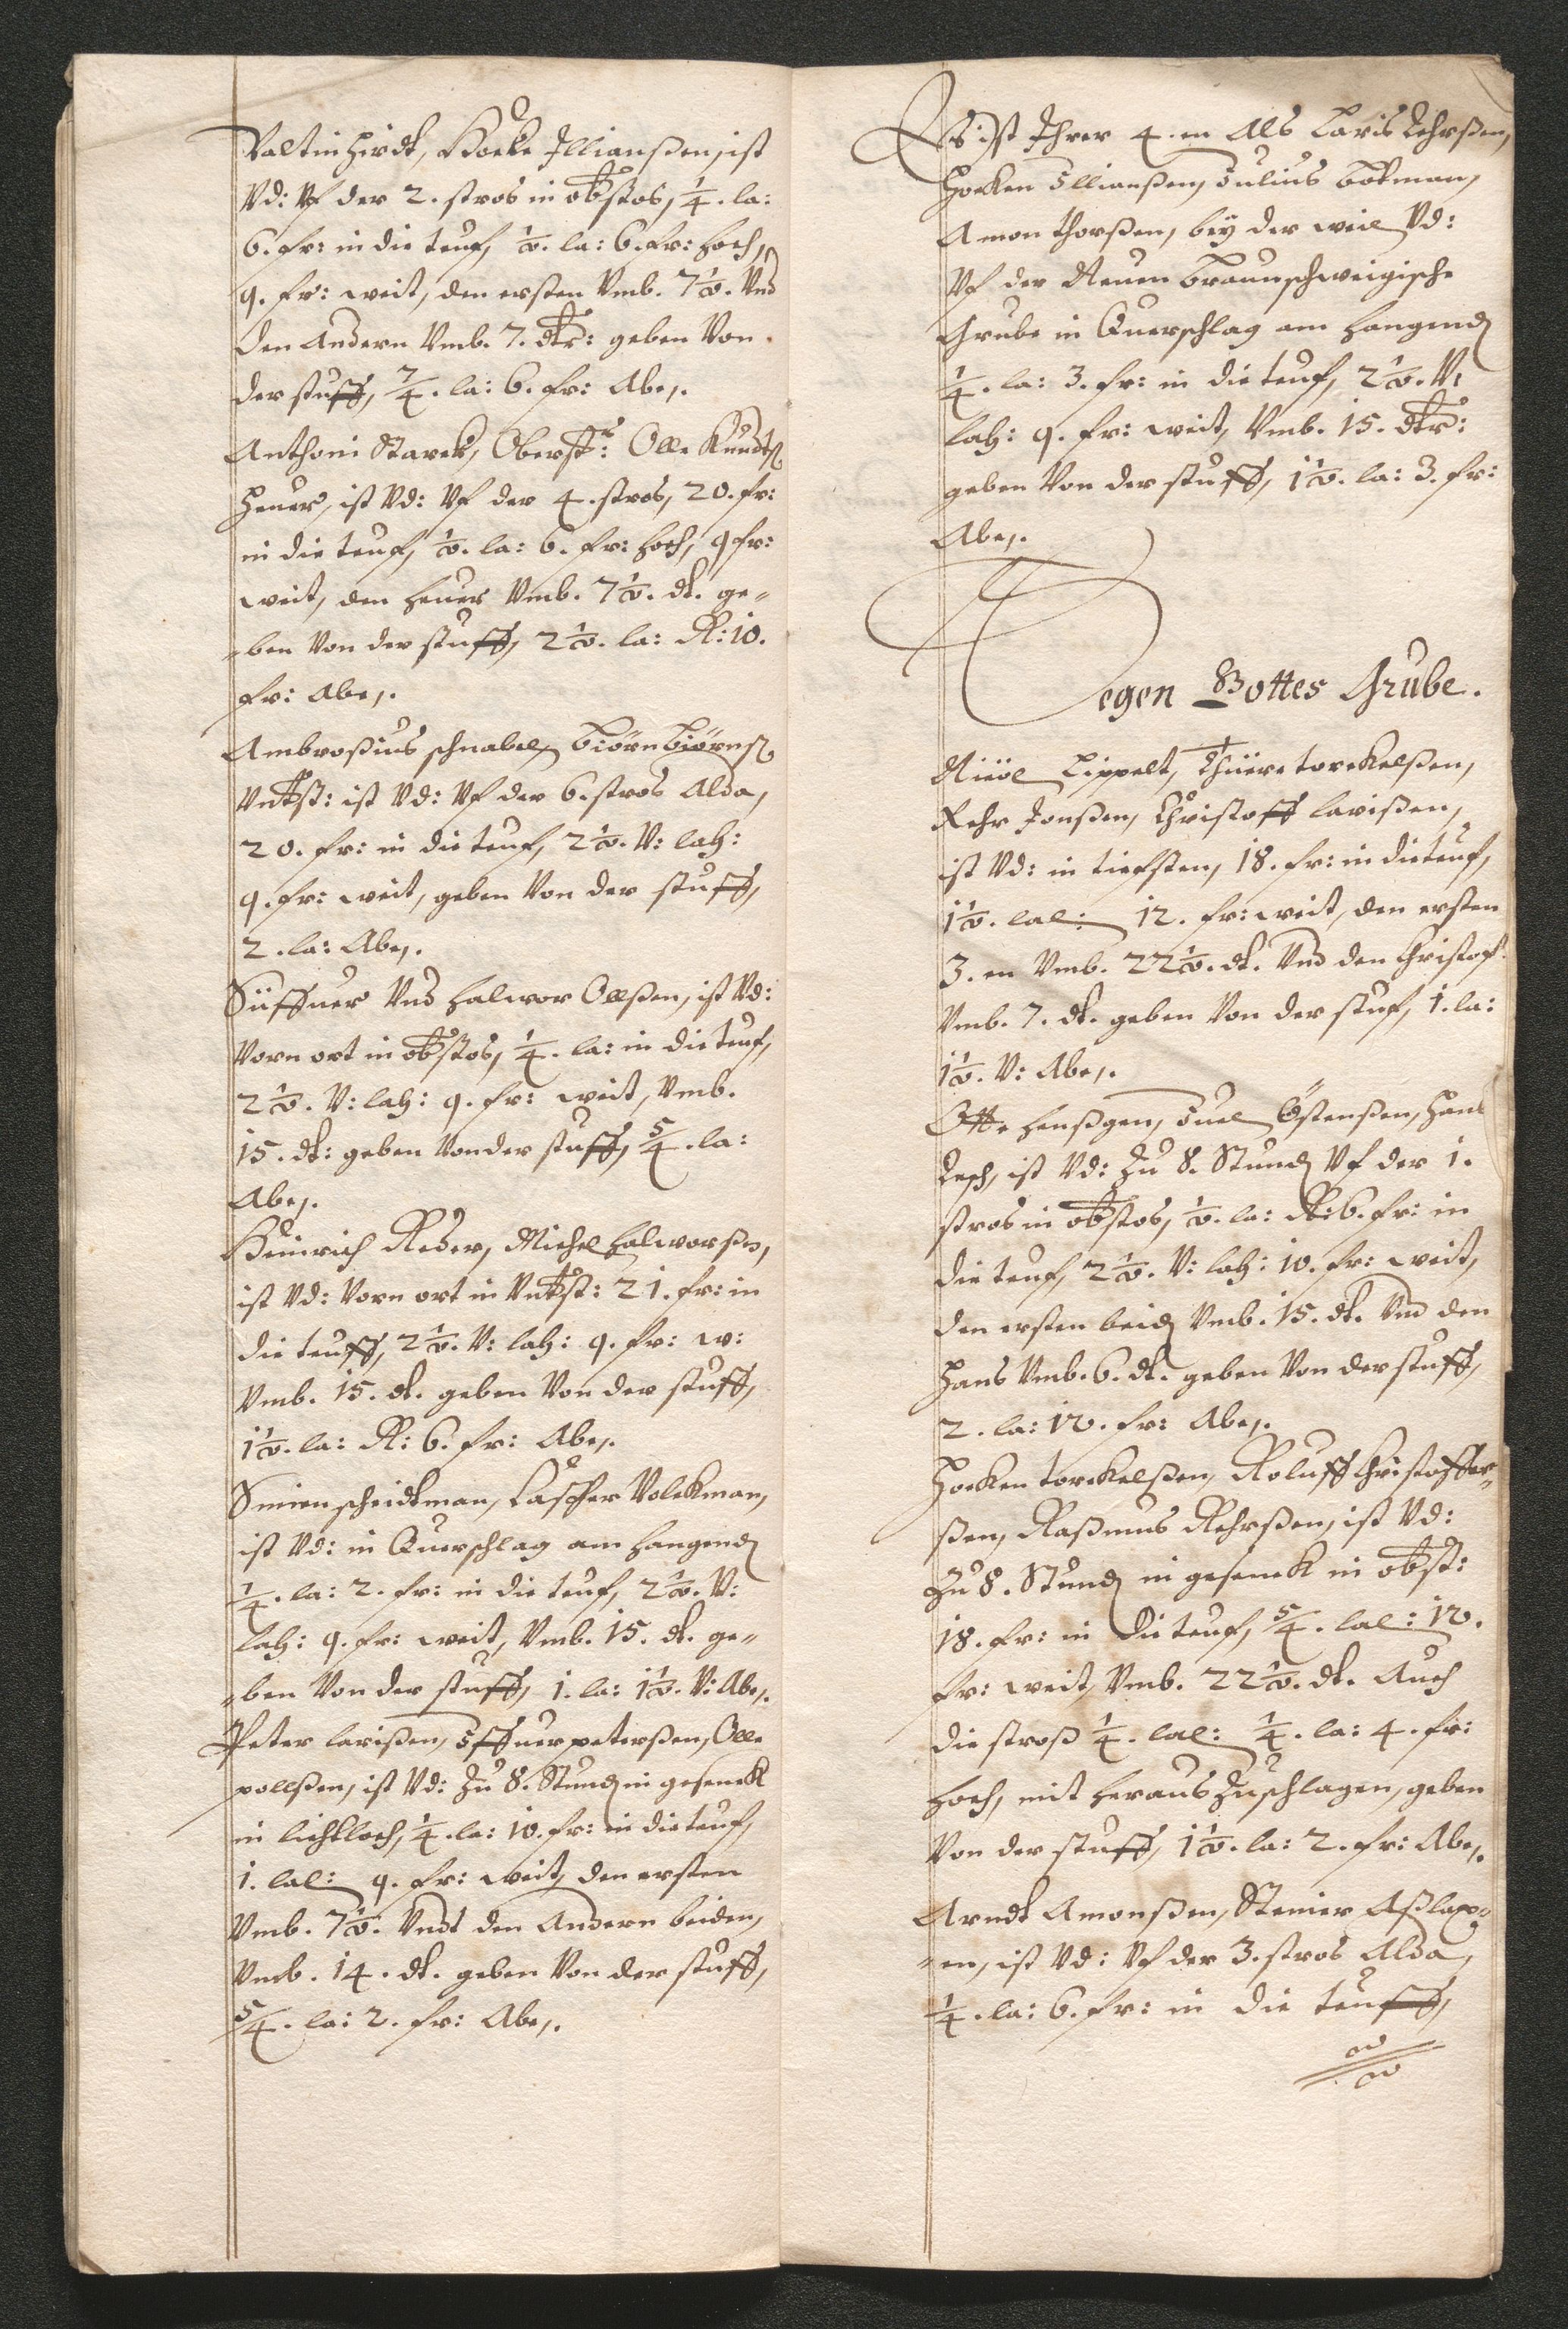 Valtin Hirdt, Hocke Illianßen, ist
Vd: Vf der 2. stros in obstos, 1/4. la:
6. fr: in die teuf, 1/2. la: 6. fr: hoch,
9. fr: weit, den ersten Vmb. 7 1/2. Vnd
den Andern Vmb. 7. dlr: geben Von
der stuff, 7/4. la: 6. fr: Abe,.
Anthoni Starck, Oberst: Olle Knudtß
Heuer, ist Vd: Vf der 4. stros, 20. fr:
in die teuf, 1/2. la: 6. fr: hoch, 9 fr:
weit, den heuer Vmb. 7 1/2. dl. ge-
-ben Von der stuff, 2 1/2. la: R: 10.
fr: Abe,.
Ambrosius schnabel, Biörn Biörnß
Vntst: ist Vd: Vf der 6. stros Alda,
20. fr: in die teuf, 2 1/2. V: lah:
9. fr: weit, geben Von der stuff,
2. la: Abe,.
Süffuer Vnd Halwor Ollßen, ist Vd:
Vorn ort in obstos, 1/4. la: in die teuf,
2 1/2. V: lah: 9. fr: weit, Vmb.
15. dl: geben Von der stuff, 5/4. la:
Abe,.
Heinrich Reder, Michel Halworßen,
ist Vd: Vorn ort in Vntst: 21. fr: in
die teuff, 2 1/2. V: lah: 9. fr: w:
Vmb. 15. dl. geben Von der stuff,
1 1/2. la: R: 6. fr: Abe,.
Simen scheidtman, Casper Volckman,
ist Vd: in Querschlag am hangenden
1/4. la: 2. fr: in die teuf, 2 1/2. V:
lah: 9. fr: weit, Vmb. 15. dl. ge-
-ben Von der stuff, 1. la: 1 1/2. V: Abe,.
Peter larißen, Siffuer peterßen, Olle
pollßen, ist Vd: Zu 8. Stunden in gesenck
in lichtloch, 1/4. la: 10. fr: in die teuf,
1. lal: 9. fr: weit, den ersten
Vmb. 7 1/2. Vndt den Andern beiden,
Vmb. 14. dl. geben Von der stuff,
5/4. la: 2. fr: Abe,.
Es ist Ihrer 4. en Als Laris Lehrßen,
Hocken Illianßen, Julius Botman,
Amon thorßen, bey der weil Vd:
Vf der Neuen Braunschweigische
Grube in Querschlag am hangenden
1/4. la: 3. fr: in die teuf, 2 1/2. V:
lah: 9. fr: weit, Vmb. 15. dlr:
geben Von der stuff, 1 1/2. la: 3. fr:
Abe,.
Segen Gottes Grube.
Lippelt, Thüere torckelßen,
Rehr Jonßen, Christoff larißen,
ist Vd: in tieffsten, 18. fr: in die teuf,
1 1/2. lal: 12. fr: weit, den ersten
3. en Vmb. 22 1/2. dl. Vnd den Christof
Vmb. 7. dl. geben Von der stuf, 1. la:
1 1/2. V: Abe,.
Otte Henßgen, Juel Östenßen, Hans
Lesch, ist Vd: Zu 8. Stunden Vf der 1.
stros in obstos, 1/2. la: R: 6. fr: in
die teuf, 2 1/2. V: lah: 10. fr: weit,
den ersten beiden Vmb. 15. dl. Vnd den
Hans Vmb. 6. dl. geben Von der stuff,
2. la: 12. fr: Abe,.
Hocken torckelßen, Roluff Christoffer-
ßen, Raßmus Rehrßen, ist Vd:
Zu 8. Stunden in gesenck in obst:
18. fr: in die teuf, 5/4. lal: 12.
fr: weit, Vmb. 22 1/2. dl. Auch
die stroß 1/4. lal: 1/4. la: 4. fr:
hoch, mit heraus Zuschlagen, geben
Von der stuff, 1 1/2. la: 2. fr: Abe,.
Arndt Amonßen, Steiner Aßlaxß-
-en, ist Vd: Vf der 3. stros Alda,
1/4. la: 6. fr: in die teuff,